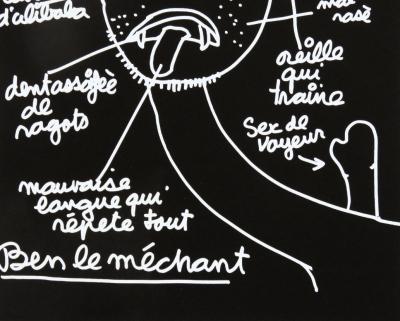 d'alibaba
mal
rasè
oreille
qui
traine
dent assoifèè
de
ragots
Sex de
voyeur
mauvaise
langue qui
répète tout
Ben le méchant